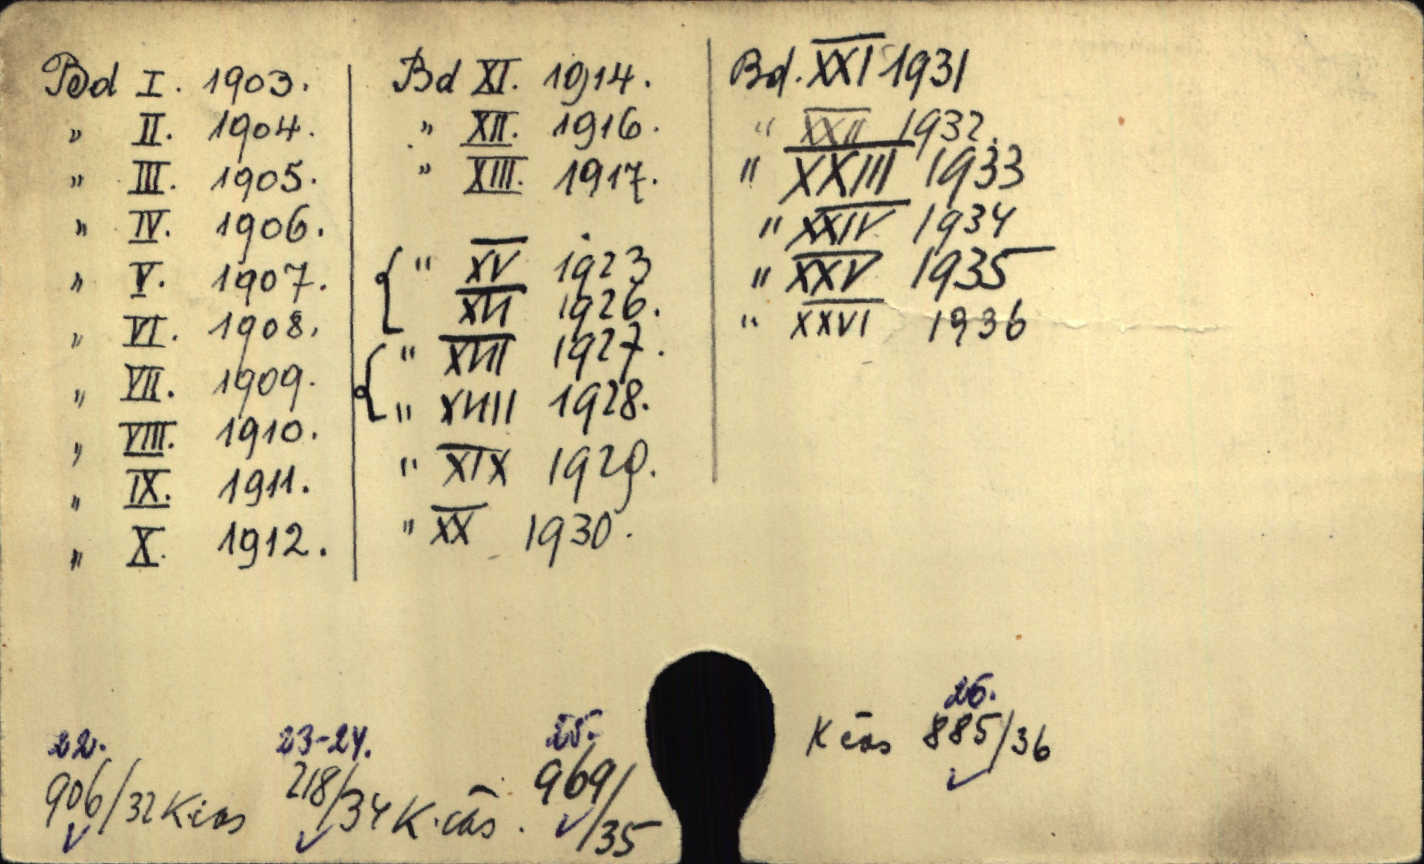 Bd I. 1903.
" II. 1904.
" III. 1905.
" IV. 1906.
" V. 1907.
" VI. 1908.
" VII. 1909.
" VIII. 1910.
" IX. 1911.
" X. 1912.
Bd XI. 1914.
" XII. 1916.
" XIII. 1917.
" XV 1923
XVI 1926.
" XVII 1927.
" XVIII 1928.
" XIX 1929.
" XX 1930.
Bd. XXI 1931
" XXII 1932.
" XXIII 1933
" XXIV 1934
" XXV 1935
" XXVI 1936
22.
906/32
23-24.
218/34
25.
969/35
26.
885/36